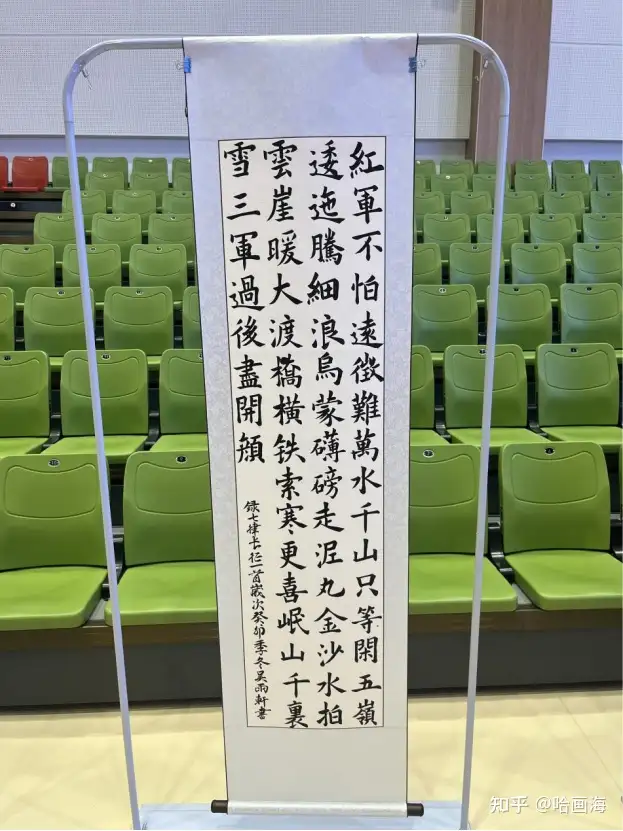 紅軍不怕遠徵難萬水千山只等閑五嶺
逶迤騰細浪烏蒙礴磅走泥丸金沙水拍
雲崖暖大渡橋橫铁索寒更喜岷山千裏
雪三軍過後盡開顏
録七律长征一首嵗次癸卯季冬吴雨軒書
知乎 @哈画海